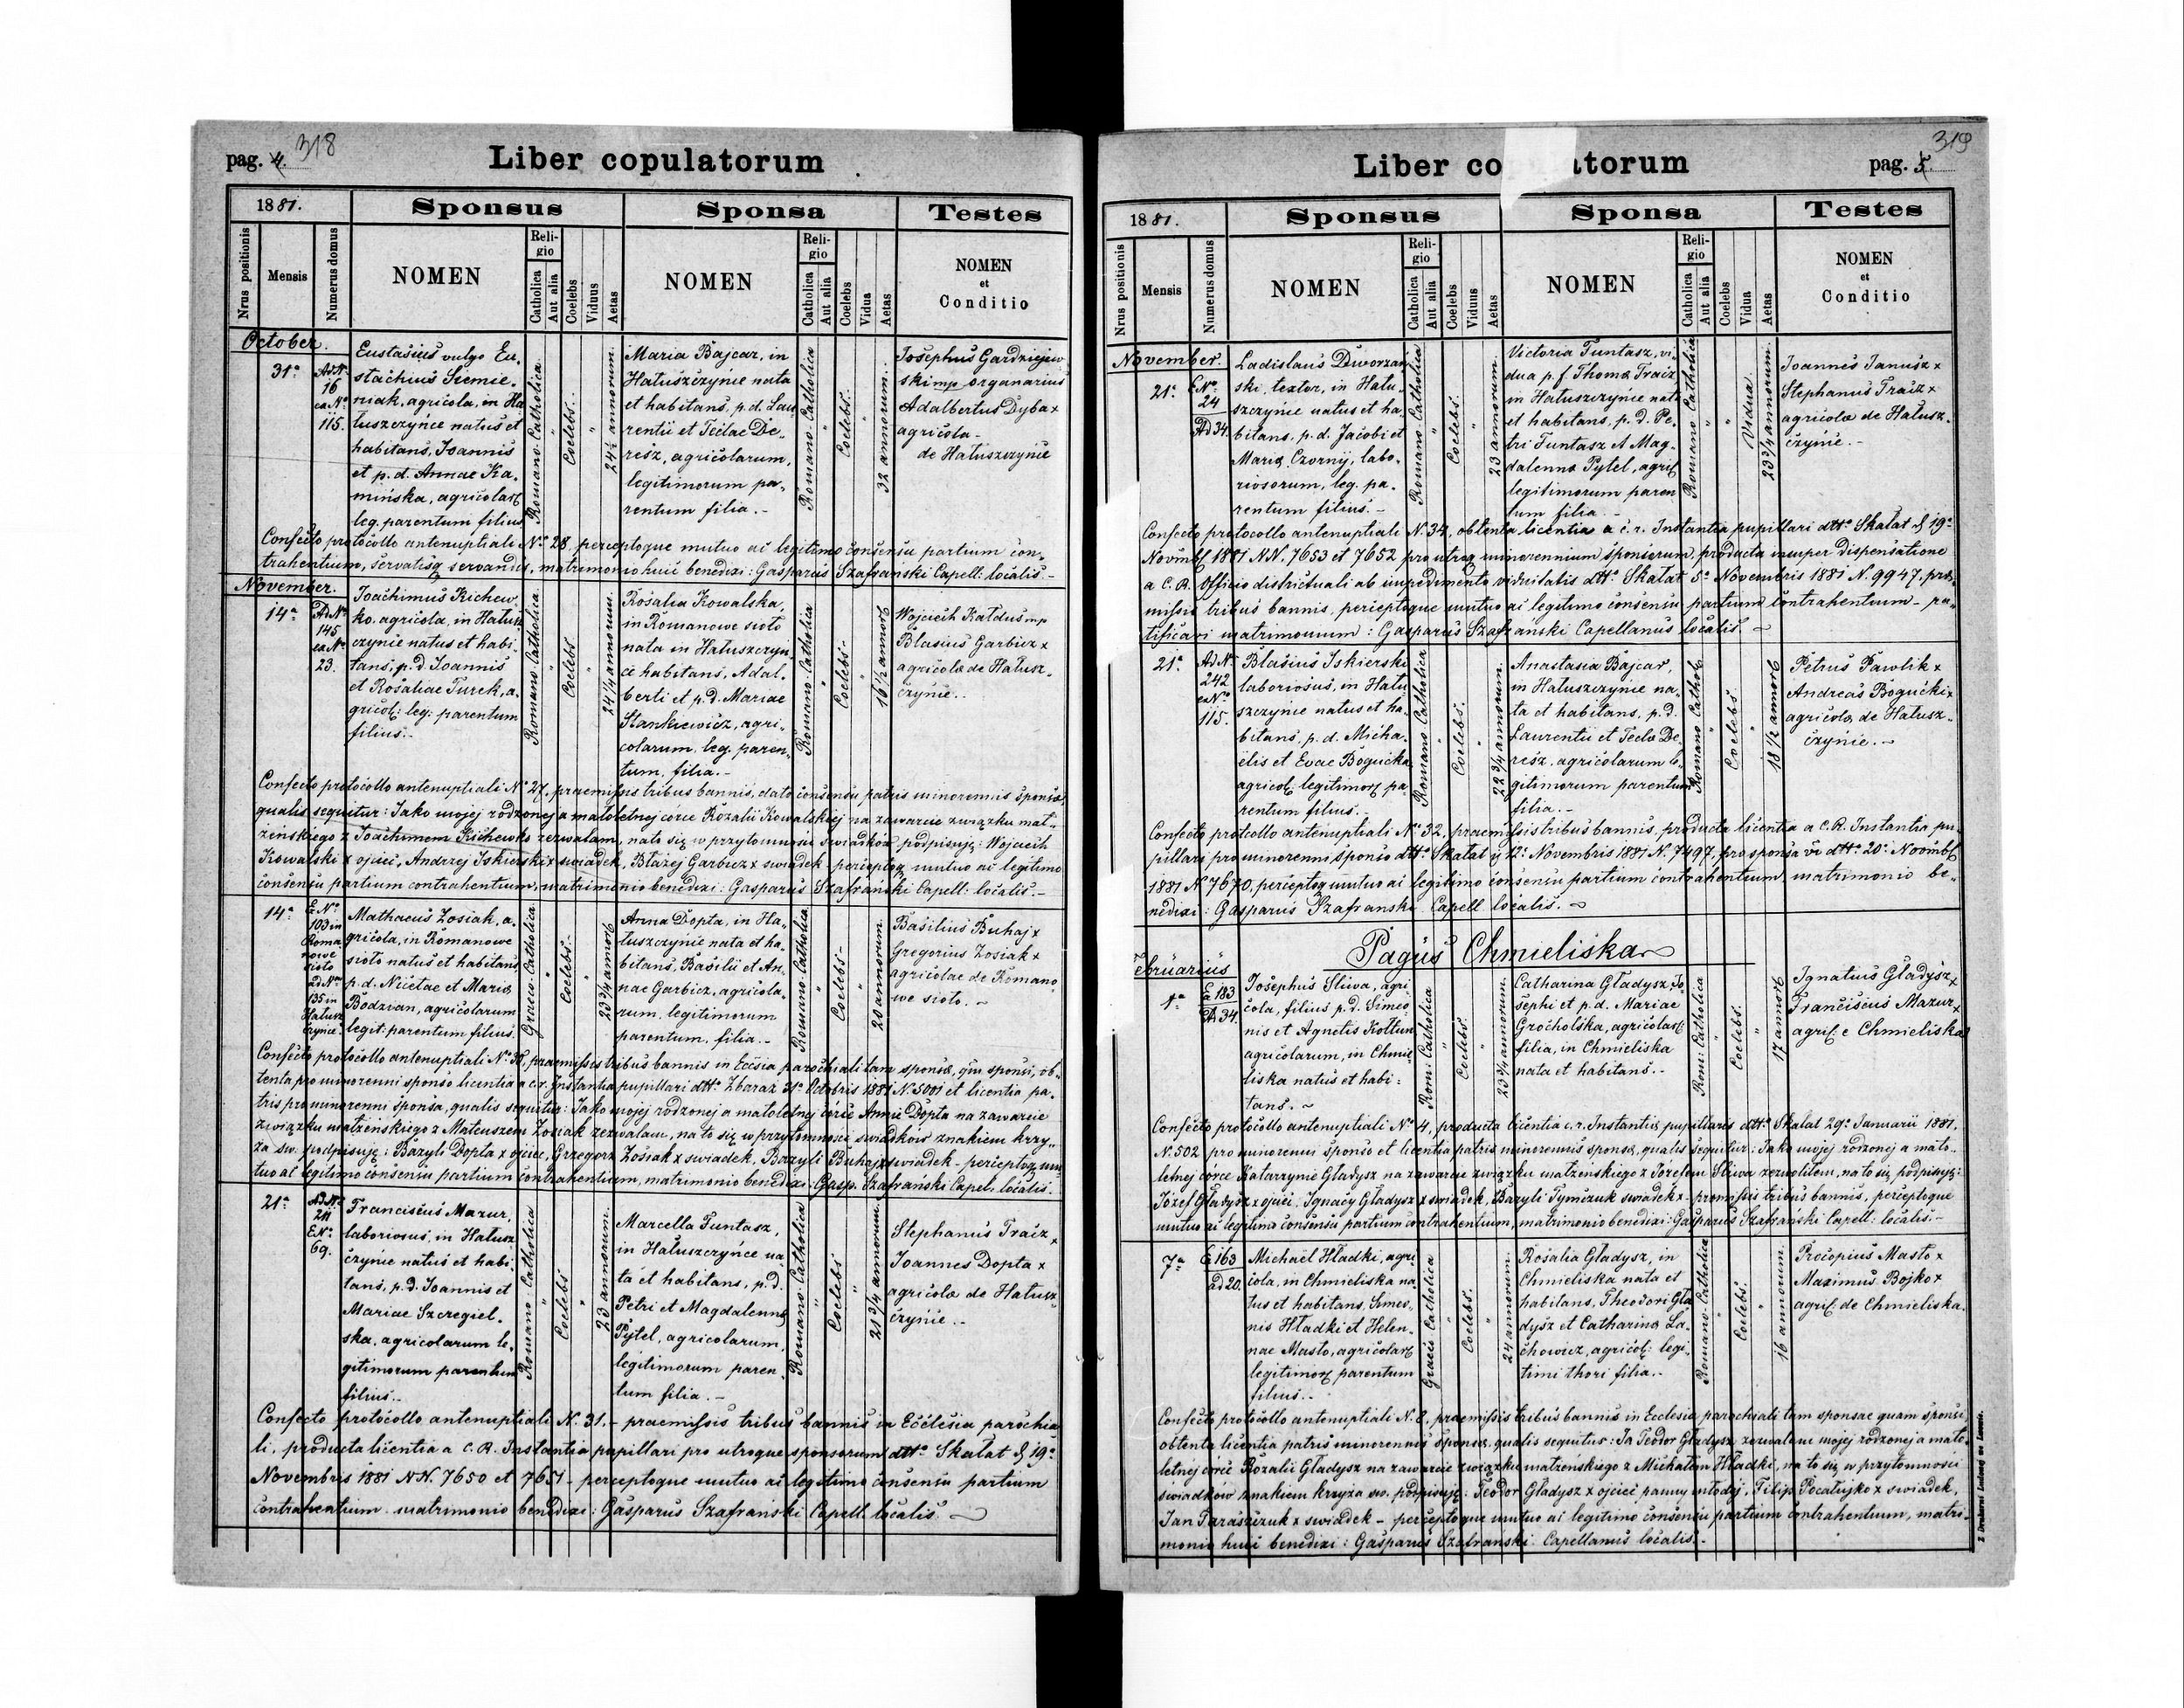 pag. 4. 318
Liber copulatorum
1881.
Sponsus
Sponsa
Testes
Nrus positionis
Mensis
Numerus domus
NOMEN
Religio
Catholica
Aut alia
Coelebs
Viduus
Aetas
NOMEN
Religio
Catholica
Aut alia
Coelebs
Vidua
Aetas
NOMEN
et
Conditio
October.
31a
Ad No
16
ea No
115.
Eustasius vulgo Eu-
stachius Siemie-
niak, agricola, in Ha
łuszczyńce natus et
habitans, Joannis
et p. d. Annae Ka-
mińska, agricolar
leg. parentum filius
Romano-Catholica
"
Coelebs.
"
24½ annorum.
Maria Bajcar, in
Hałuszczyńce nata
et habitans, p. d. Lau
rentii et Teclae De-
resz, agricolarum,
legitimorum pa-
rentum filia.-
Romano-Catholica
"
Coelebs.
"
32 annorum.
Josephus Gardziejew
ski mp organarius
Adalbertus Dyba x
agricola-
de Hałuszczynie
Confecto protocollo antenuptiali No 28, perceptoque mutuo ac legitimo consensu partium con-
trahentium, servatisq servandis, matrimonio huic benedixi: Gasparus Szafrański Capell: localis.-
November.
14a
Ad No
145
ea No
23.
Joachimus Kichew-
ko, agricola, in Hałusz
czynie natus et habi-
tans, p. d. Joannis
et Rosaliae Turek, a-
gricol: leg: parentum
filius.-
Romano-Catholica
"
Coelebs
"
24¼ annorum.
Rosalia Kowalska,
in Romanowe sioło
nata in Hałuszczyń
ce habitans, Adal-
berti et p. d. Mariae
Stankiewicz, agri-
colarum, leg. paren-
tum, filia.-
Romano-Catholica
"
Coelebs-
"
16½ annor
Wojciech Kałdus mp
Blasius Garbicz x
agricolae de Hałusz-
czynie..
Confecto protocollo antenuptiali No 27, praemissis tribus bannis, dato consensu patris minorennis sponsae
qualis sequitur: Jako mojej rodzonej a małoletnej córce Rozalii Kowalskiej na zawarcie związku mał-
żeńskiego z Joachimem Kichewko zezwalam, nato się w przytomności świadków podpisuję: Wojciech
Kowalski x ojciec, Andrzej Iskierski x swiadek, Błażej Garbicz x swiadek, perceptoq mutuo ac legitimo
consensu partium contrahentium, matrimonio benedixi: Gasparus Szafrański Capell: localis.-
14a
E No
103 in
Roma
nowe
sioło
ad No
135 in
Hałusz
czynie.
Mathaeus Zosiak, a-
gricola, in Romanowe
sioło natus et habitans,
p. d. Nicetae et Maria
Bodzian, agricolarum
legit: parentum filius.
Graeco-Catholica
"
Coelebs.-
"
23¾ annor
Anna Dopta, in Ha-
łuszczynie nata et ha-
bitans, Basilii et An-
nae Garbicz, agricola-
rum, legitimorum
parentum, filia.-
Romano-Catholica
"
Coelebs-
"
20 annorum
Basilius Buhaj x
Gregorius Zosiak x
agricolae de Romano
we sioło.
Confecto protocollo antenuptiali No praemissis tribus bannis in Ecclesia parochiali tam sponsae, qm sponsi, ob-
tenta pro minorenni sponso licentia a c.r. Instantia pupillari dtto Zbaraz 31a Octobris 1881 N. 5001 et licentia pa-
tris pro minorenni sponsa, qualis sequitur: Jako mojej rodzonej a małoletnej córce Annie Dopta na zawarcie
związku małżeńskiego z Mateuszem Zosiak zezwalam, na to się w przytomności swiadków znakiem krzy-
ża św. podpisuję: Bazyli Dopta x ojciec, Grzegorz Zosiak x swiadek, Bazyli Buhaj x swiadek - perceptoq mu
tuo ac legitimo consensu partium contrahentium, matrimonio benedixi: Gasp. Szafrański Capel. localis.
21a
Ad No
211
E No
69.
Franciscus Mazur,
laboriosus, in Hałusz
czynie natus et habi-
tans, p. d. Joannis et
Mariae Szczegiel-
ska, agricolarum le-
gitimorum parentum
filius..
Romano-Catholica
"
Coelebs
"
23 annorum.
Marcella Funtasz,
in Hałuszczyńce na
ta et habitans, p. d.
Petri et Magdalenna
Pytel, agricolarum,
legitimorum paren-
tum filia.-
Romano-Catholica
"
Coelebs
"
21¾ annorum.
Stephanus Fraiz x
Joannes Dopta x
agricolae de Hałusz
czynie..
Confecto protocollo antenuptiali N. 31.- praemissis tribus bannis in Ecclesia parochia-
li, producta licentia a C. R. Instantia pupillari pro utroque sponsorum dtto Skałat d 19a
Novembris 1881 NN. 7650 et 7651 - perceptoque mutuo ac legitimo consensu partium
contrahentium matrimonio benedixi: Gasparus Szafrański Capell. localis.
Liber co   atorum
pag. 5. 319
1881.
Sponsus
Sponsa
Testes
Nrus positionis
Mensis
Numerus domus
NOMEN
Religio
Catholica
Aut alia
Coelebs
Viduus
Aetas
NOMEN
Religio
Catholica
Aut alia
Coelebs
Vidua
Aetas
NOMEN
et
Conditio
November.
21a
E No
24
Ad 34.
Ladislaus Dworzań
ski, textor, in Hału-
szczynie natus et ha-
bitans, p. d. Jacobi et
Maria Czornij, labo-
riosorum, leg. pa-
rentum filius.-
Romano-Catholica
"
Coelebs.
"
23 annorum.
Victoria Funtasz, vi-
dua p. f. Thoma Fraiz
in Hałuszczynie nata
et habitans, p. d. Pe-
tri Funtasz et Mag-
dalenna Pytel, agric
legitimorum paren
tum filia.-
Romano-Catholica
"
"
Vidua.
23¾ annorum.
Joannes Janusz x
Stephanus Fraiz x
agricolae de Hałusz-
czynie.-
Confecto protocollo antenuptiali N. 34, obtenta licentia a c. r. Instantia pupillari dtto Skałat d 19a
Novmb 1881 NN. 7653 et 7652 pro utroq minorennium sponsorum, producta insuper dispensatione
a C. R. Officio districtuali ab impedimento viduitatis dtto Skałat 5a Novembris 1881 N. 9947, prae-
missis tribus bannis, perceptoque mutuo ac legitimo consensu partium contrahentium - ra-
tificavi matrimonium: Gasparus Szafranski Capellanus localis.
21a
Ad No
242
ea No
115.
Blasius Iskierski
laboriosus, in Hału
szczynie natus et ha-
bitans, p. d. Micha-
elis et Evae Bogucka
agricol: legitimor pa-
rentum filius.-
Romano Catholica
"
Coelebs.
"
22¾ annorum.
Anastasia Bajcar,
in Hałuszczynie na-
ta et habitans, p. d.
Laurentii et Tecla De-
resz, agricolarum le-
gitimorum parentum
filia.-
Romano Cathol
"
Coelebs.
"
18½ annor
Petrus Pawlik x
Andreas Bogucki x
agricolae de Hałusz-
czynie.-
Confecto protocollo antenuptiali No 32, praemissis tribus bannis, producta licentia a C. R. Instantia pu-
pillari pro minorenni sponso dtto Skałat d 12a Novembris 1881 N. 7497, pro sponsa vo dtto 20a Novmb
1881 N. 7670, perceptoq mutuo ac legitimo consensu partium contrahentium, matrimonio be-
nedixi: Gasparus Szafranski Capell localis.
Pagus Chmieliska
Februarius
1a
E 183
Ad 34.
Josephus Sliwa, agri-
cola, filius p. d. Simeo-
nis et Agnetis Kottun
agricolarum, in Chmie
liska natus et habi-
tans.
Rom: Catholica
"
Coelebs.
"
23¾ annorum.
Catharina Gładysz, Jo-
sephi et p. d. Mariae
Grocholska, agricolar
filia, in Chmieliska
nata et habitans.-
Rom: Catholica
"
Coelebs.
"
17 annor
Ignatius Gładysz x
Franciscus Mazur x
agric e Chmieliska
Confecto protocollo antenuptiali No 4, producta licentia c. r. Instantia pupillaris dtto Skałat 29a Januarii 1881.
N. 502 pro minorenni sponso et licentia patris minorennis sponsae, qualis sequitur: Jako mojej rodzonej a mało-
letnej córce Katarzynie Gładysz na zawarcie związku małżeńskiego z Józefem Sliwa zezwoliłem, na to się podpisuję:
Józef Gładysz x ojciec, Ignacy Gładysz x swiadek, Bazyli Tymczuk swiadek x - promissis tribus bannis, perceptoque
mutuo ac legitimo consensu partium contrahentium, matrimonio benedixi: Gasparus Szafrański Capell: localis.-
7a
E 163
ad 20.
Michael Hładki, agri
cola, in Chmieliska na
tus et habitans, Simeo-
nis Hładki et Helen-
nae Masło, agricolar
legitimor parentum
filius.-
Graeco Catholica
"
Coelebs.
"
24 annorum.
Rosalia Gładysz, in
Chmieliska nata et
habitans, Theodori Gła
dysz et Catharina La-
chowicz, agricol: legi-
timi thori filia..
Romano-Catholica
"
Coelebs.
"
16 annorum.
Procopius Masło x
Maximus Bojko x
agric: de Chmieliska.
Confecto protocollo antenuptiali N. 2, praemissis tribus bannis in Ecclesia parochiali tam sponsae quam sponsi,
obtenta licentia patris minorennis sponsae, qualis sequitur: Ja Teodor Gładysz zezwalam mojej rodzonej a mało-
letnej córce Rozalii Gładysz na zawarcie związku małżeńskiego z Michałem Hładki, na to się w przytomności
swiadków znakiem krzyża sw. podpisuję: Teodor Gładysz x ojciec panny młodej, Filip Pocałujko x swiadek,
Jan Taraszczuk x swiadek - perceptoque mutuo ac legitimo consensu partium contrahentium, matri-
monio huic benedixi: Gasparus Szafranski Capellanus localis.-
Z Drukarni Ludowej we Lwowie.